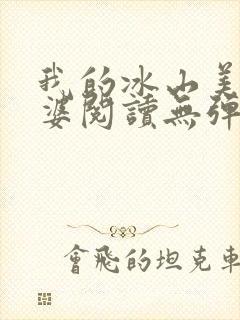 我的冰山美
婆閱讀無彈
會飛的坦克車